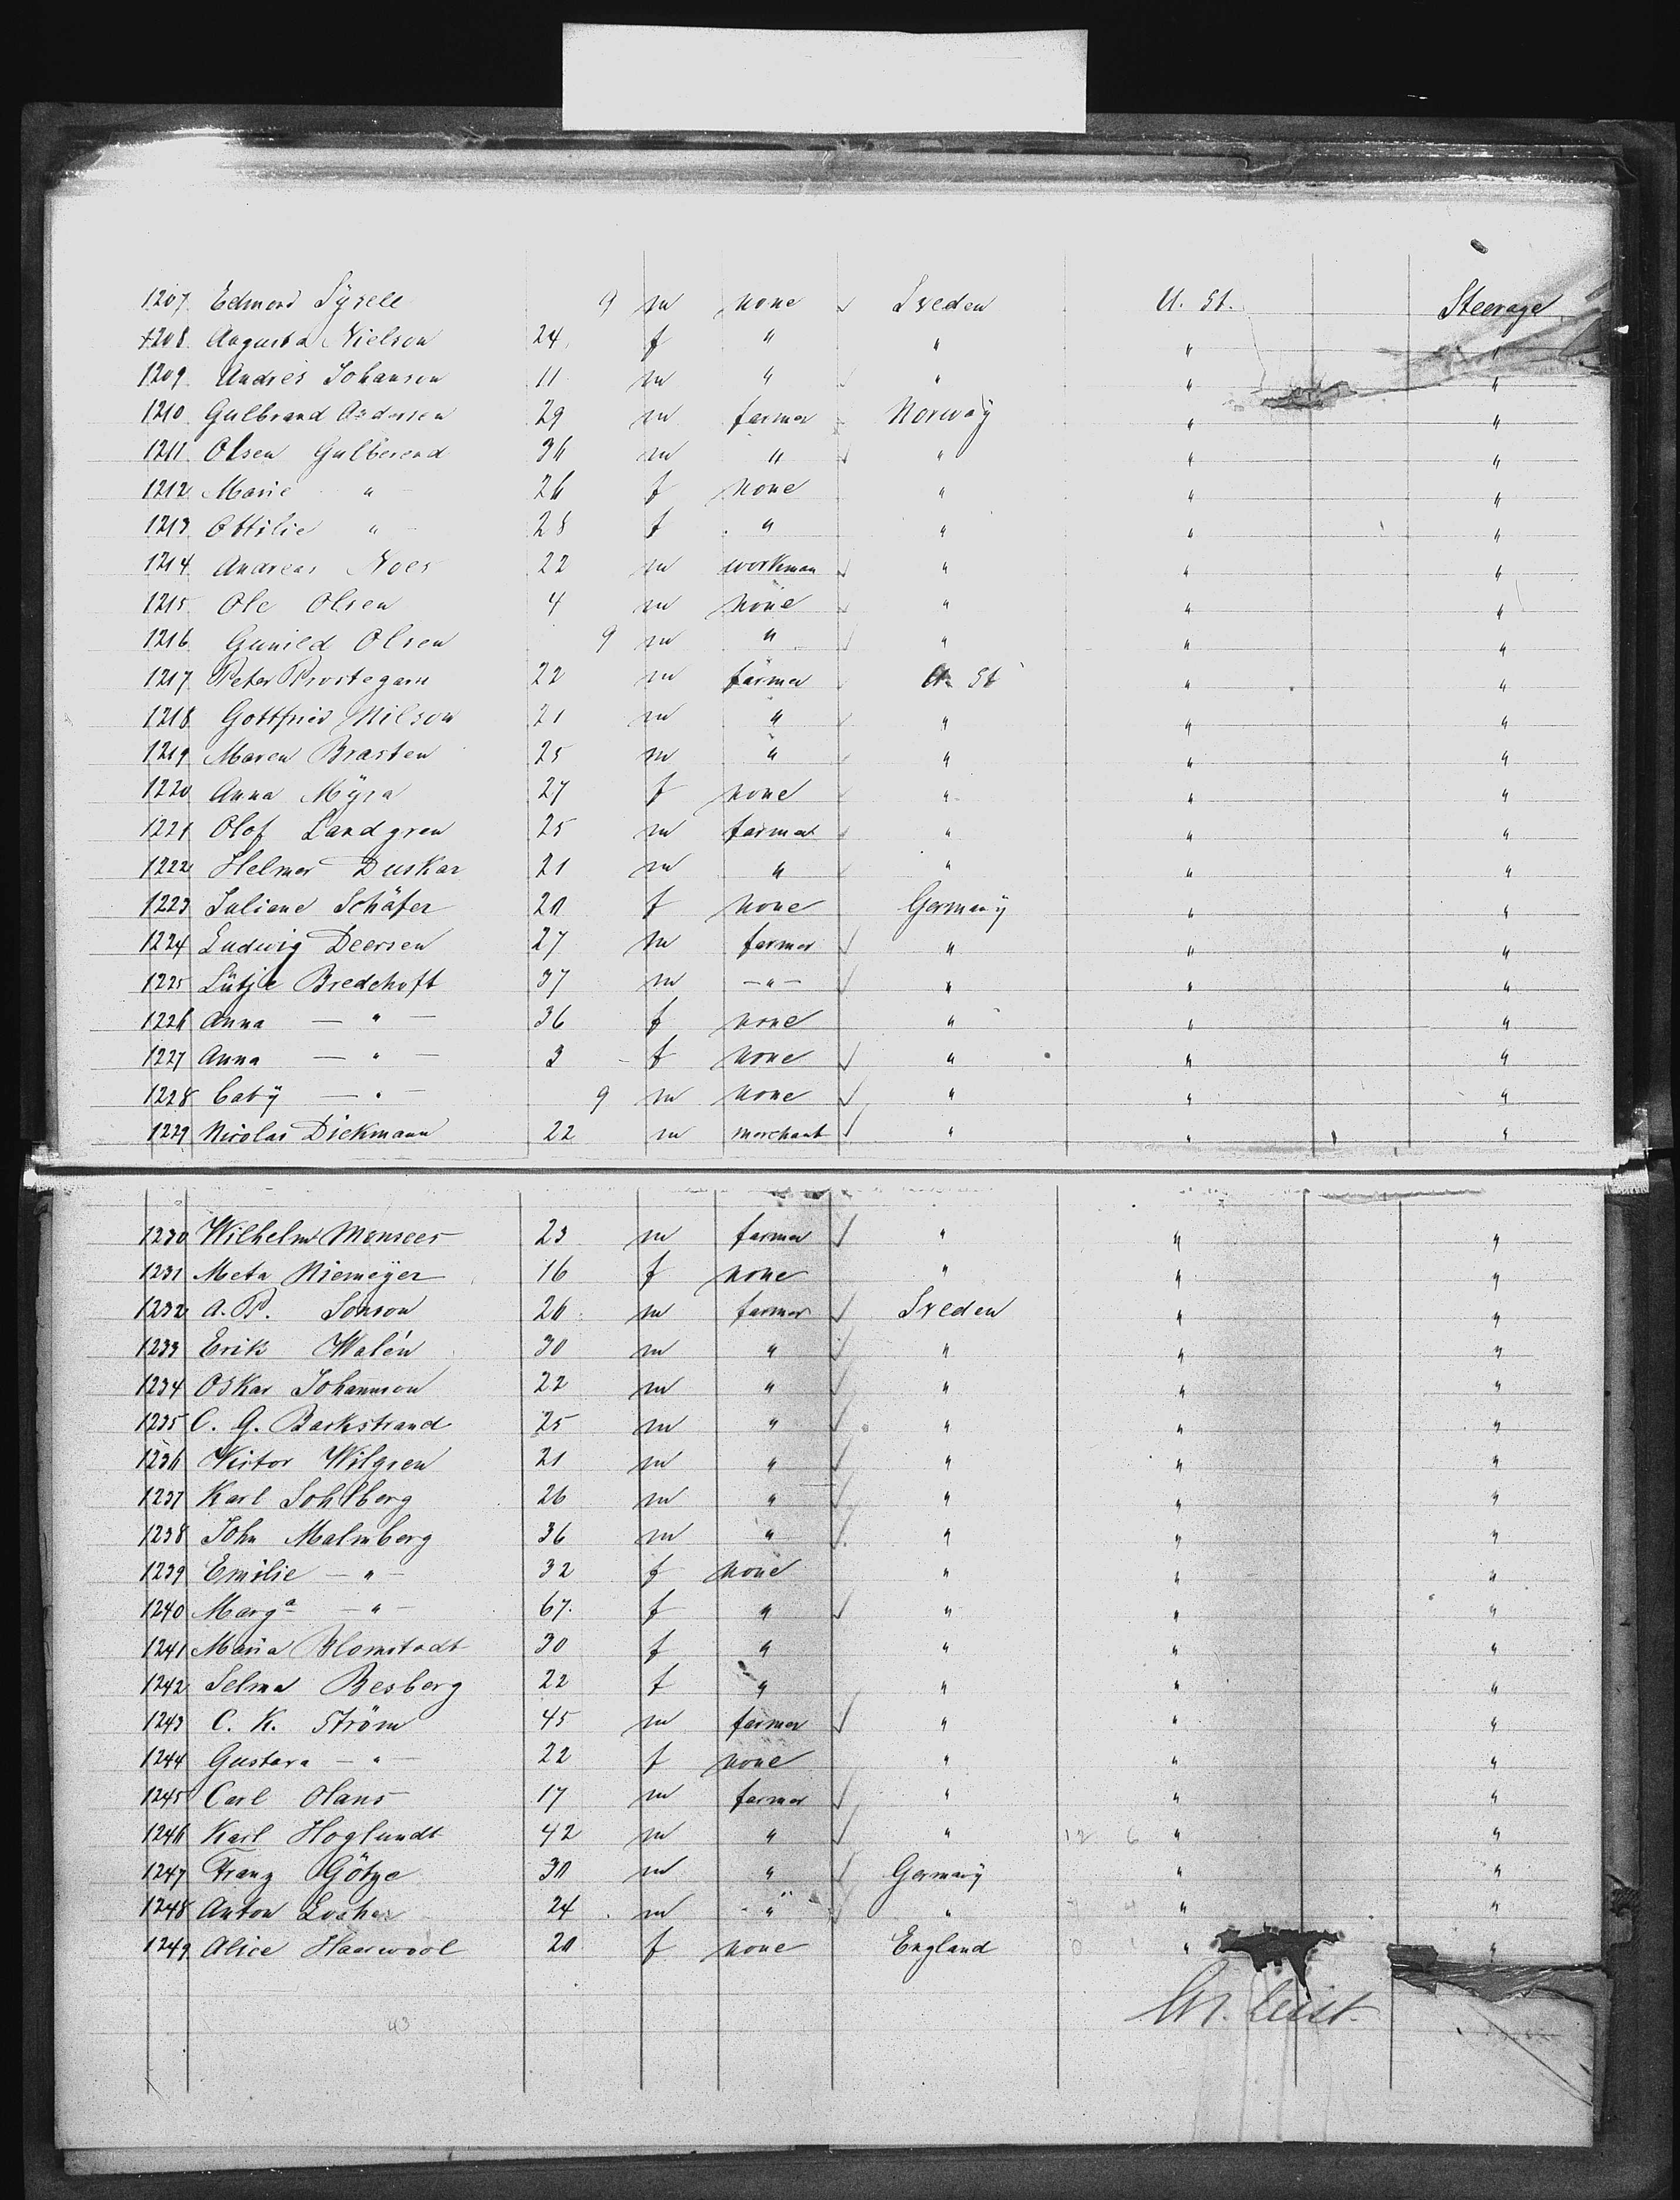 1207. Edmond Syrell 9 m none ✓ Sveden U. St. Steerage
1208. Augusta Nielson 24. f " " " "
1209. Andres Johanson 11 m " ✓ " " "
1210. Gulbrand Andersen 29 m farmer Norway " "
1211. Olsen Gulberend 36 m " ✓ " " "
1212. Marie " - 26 f none " " "
1213. Ottilie " - 28 f " " " "
1214. Andreas Noes 22 m workman ✓ " " "
1215. Ole Olsen 4 m none ✓ " " "
1216. Gunild Olsen 9 m " ✓ " " "
1217. Peter 22 m farmer U. St " "
1218. Gottfried Nilson 21 m " ✓ " " "
1219 Maren Brasten 25 m " ✓ " " "
1220 Anna Myra 27 f none ✓ " " "
1221 Olof Landgren 25 m farmer ✓ " " "
1222 Helmer Duskar 21 m " ✓ " " "
1223 Juliane Schäfer 20 f none Germany " "
1224 Ludwig Deersen 27 m farmer ✓ " " "
1225 Lütje Bredehoft 37 m -"- ✓ " " "
1226 Anna — " — 36 f none " " "
1227 Anna — " — 3 f none ✓ " " "
1228 baby — " — 9 m none ✓ " " "
1229 Nicolas Diekmann 22 m merchant ✓ " " "
1230 Wilhelm Mensees 23 m farmer ✓ " " "
1231 Meta Niemeyer 16 f none " " "
1232 A. P. Jonson 26 m farmer ✓ Sveden " "
1233 Erik Walén 30 m " ✓ " " "
1234 Oskar Johannson 22 m " ✓ " " "
1235 C. G. Backstrand 25 m " ✓ " " "
1236 Victor Wilgren 21 m " ✓ " " "
1237 Karl Sohlberg 26 m " ✓ " " "
1238 John Malmberg 36 m " ✓ " " "
1239 Emilie - " - 32 f none " " "
1240 Marga - " - 67. f " ✓ " " "
1241 Maria Blomstadt 30 f " " " "
1242 Selma Besberg 22 f " " " "
1243 C. K. Ström 45 m farmer ✓ " " "
1244 Gustava - " - 22 f none " " "
1245 Carl Olans 17 m farmer ✓ " " "
1246 Karl Hoglundt 42 m " ✓ " 12 6 " "
1247 Franz Götze 30 m " ✓ Germany " "
1248 Anton Locher 24 m " ✓ " " "
1249 Alice Haarwool 20 f none England " "
Chr. Leist.
43